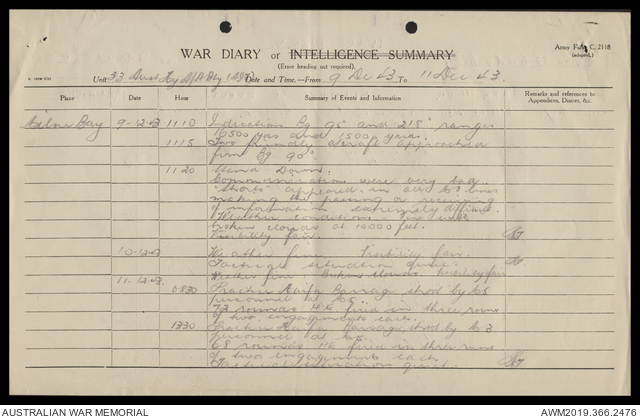 Army Form C. 2118
(adapted.)
WAR DIARY or INTELLIGENCE SUMMARY
(Erase heading not required).
Unit 33 Aust Hy A/A Bty Date and Time.—From 9 Dec 43 To 11 Dec 43.
Place Date Hour Summary of Events and Information Remarks and references to
Appendices, Diaries, &c.
Milne Bay 9-12-43 1110 Indications Bg 95° and 215° ranges
10500 yds and 1500 yards.
1115 Two friendly aircraft approached
from Bg 90°.
1120 Stand Down.
Communications were very bad.
"Shorts" appeared in all lines
making the passing or receiving
of information extremely difficult.
Weather conditions fine with
broken clouds at 10000 feet.
Visibility fair.
10-12-43 Weather fine Visibility fair.
Tactical situation quiet.
11-12-43 Weather fine Broken clouds visibility fair
0830 Practice Barrage shoot by
personnel at
73 rounds HE fired in three rows
of two engagements each.
1330 Practice Barrage shoot by
personnel at
68 rounds HE fired in three rows
of two engagements each
Tactical situation quiet.
AUSTRALIAN WAR MEMORIAL
AWM2019.366.2476